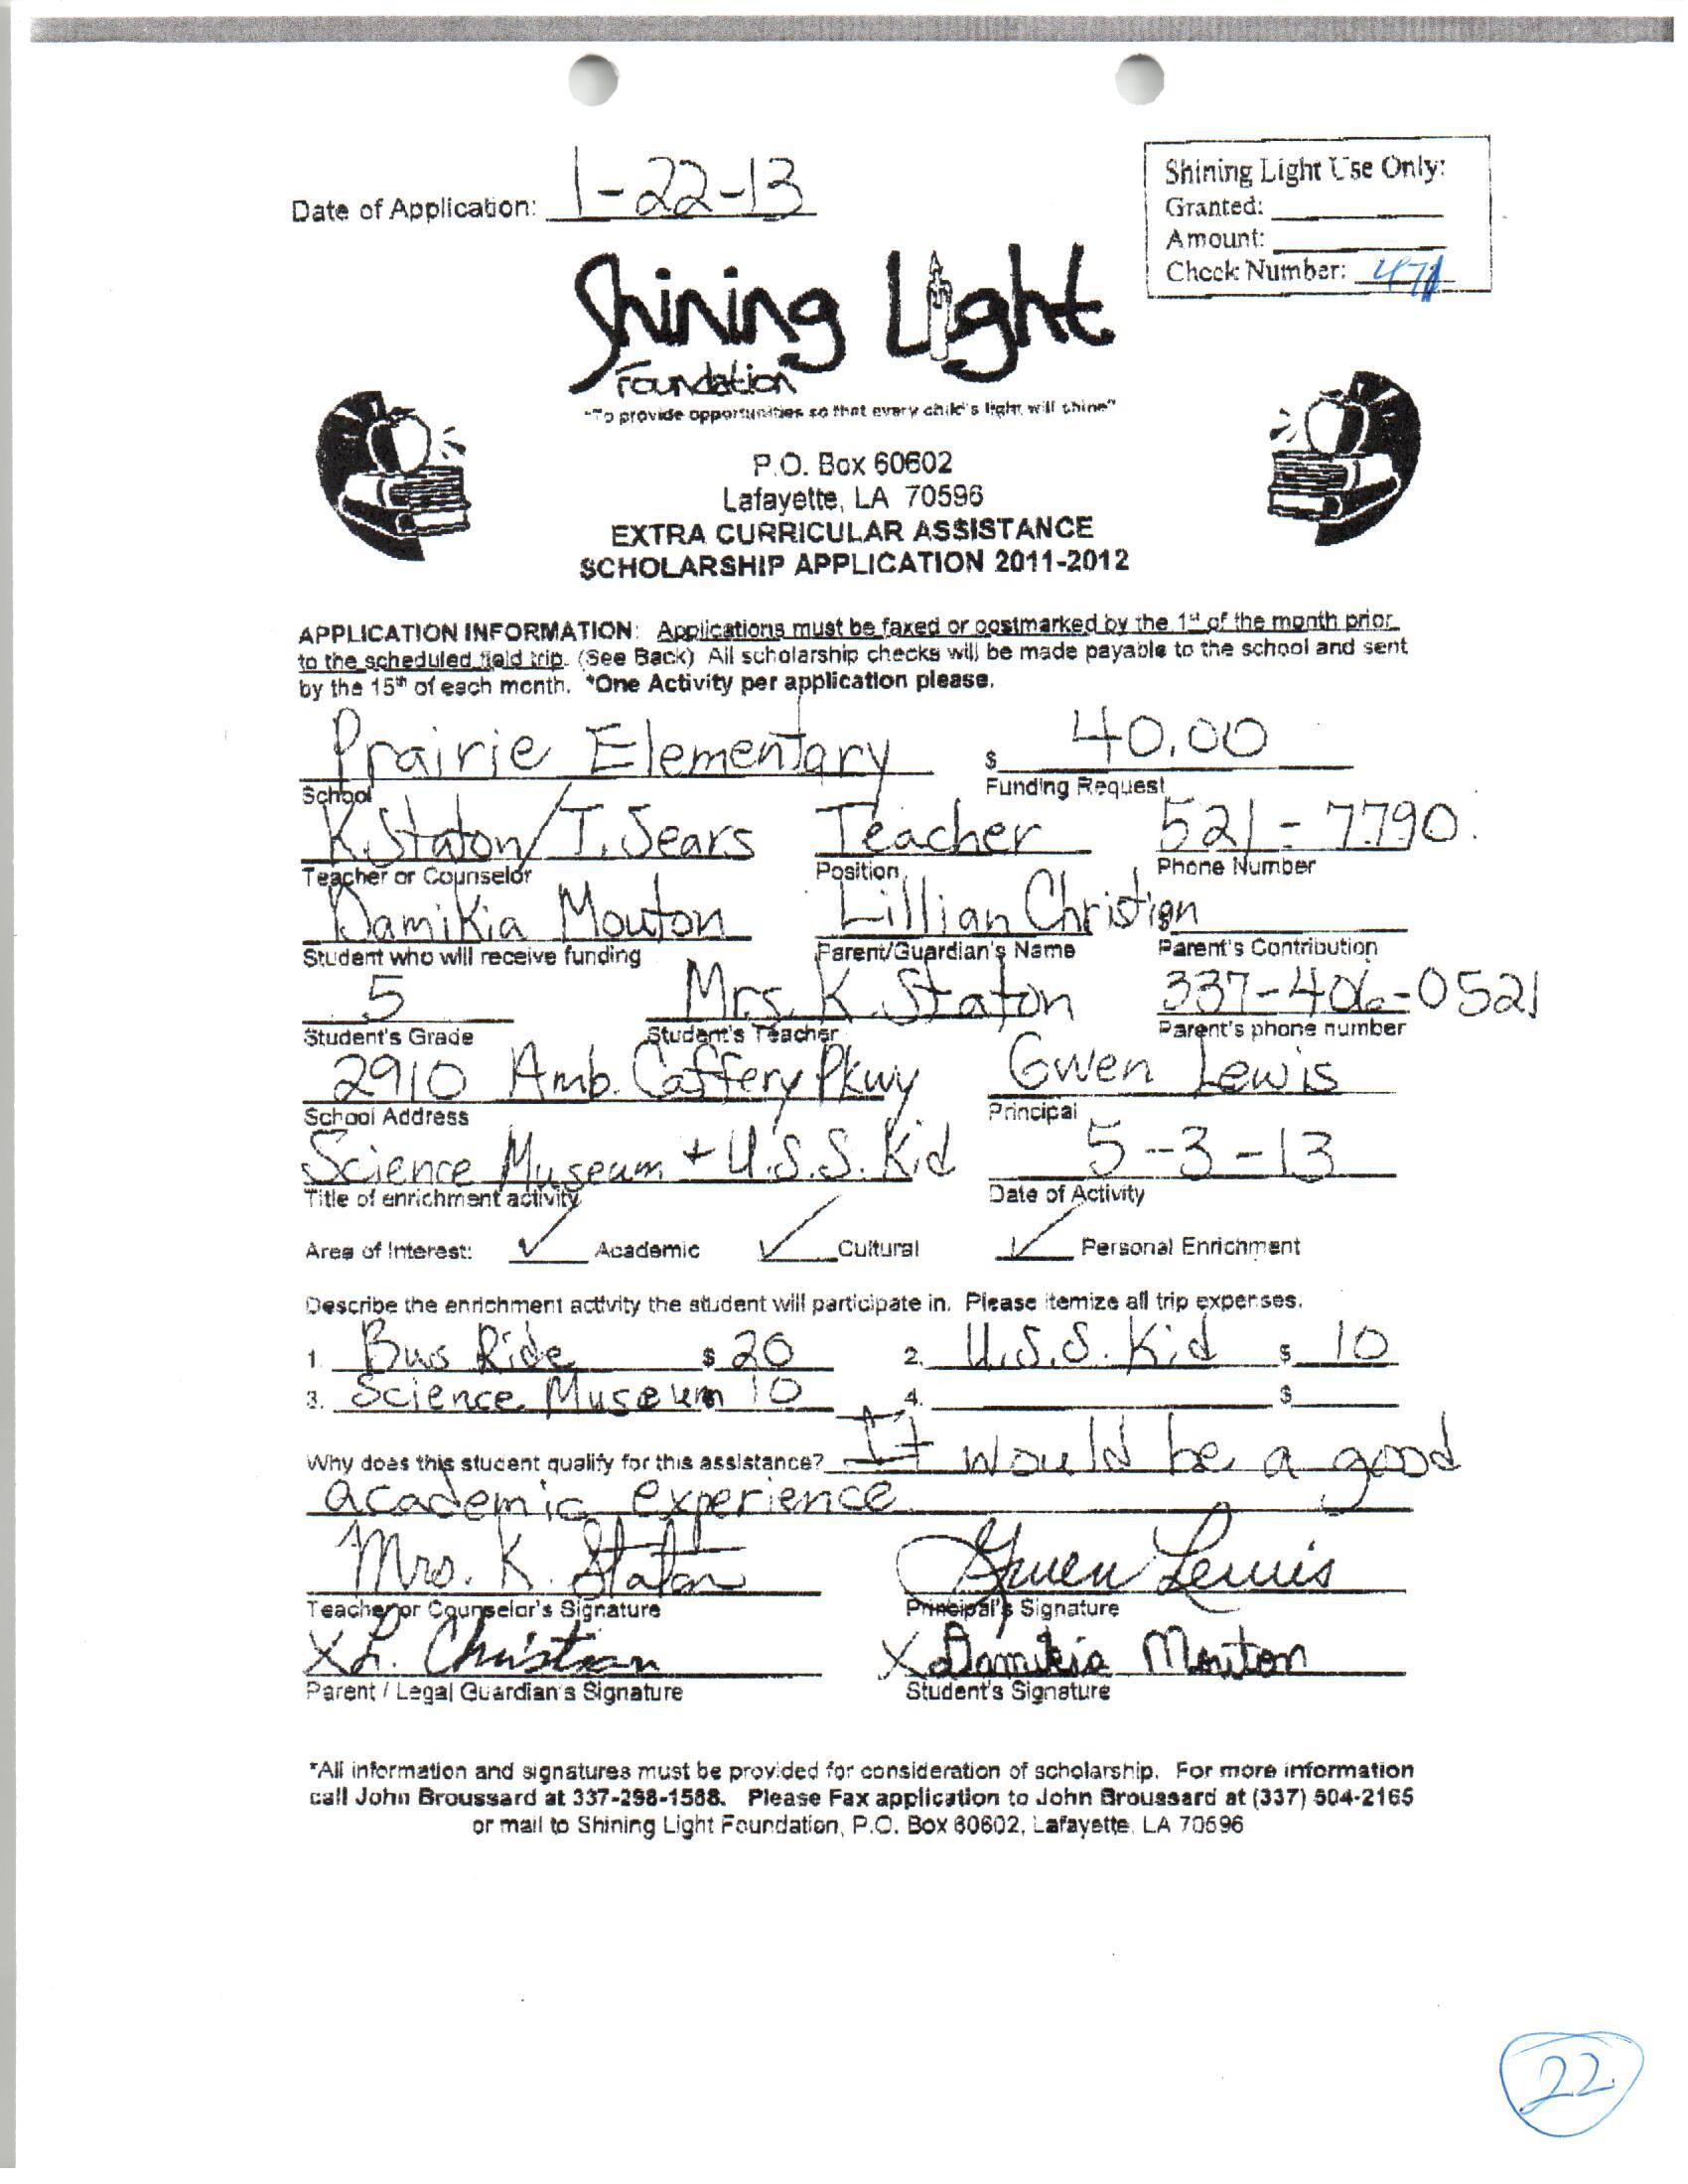 Shining Light Use Only:
Granted:
Amount:
Check Number: 471
Date of Application: 1-22-13
Shining Light
Foundation
"To provide opportunities so that every child's light will shine"
P.O. Box 60602
Lafayette, LA 70596
EXTRA CURRICULAR ASSISTANCE
SCHOLARSHIP APPLICATION 2011-2012
APPLICATION INFORMATION: Applications must be faxed or postmarked by the 1st of the month prior
to the scheduled field trip. (See Back) All scholarship checks will be made payable to the school and sent
by the 15th of each month. *One Activity per application please.
Prairie Elementary $ 40.00
School Funding Request
K. Staton/T. Sears Teacher 521-7790
Teacher or Counselor Position Phone Number
Damikia Mouton Lillian Christian
Student who will receive funding Parent/Guardian's Name Parent's Contribution
5 Mrs. K Staton 337-406-0521
Student's Grade Student's Teacher Parent's phone number
2910 Amb. Caffery Pkwy Gwen Lewis
School Address Principal
Science Museum + U.S.S. Kid 5-3-13
Title of enrichment activity Date of Activity
Area of Interest: ✓ Academic ✓ Cultural ✓ Personal Enrichment
Describe the enrichment activity the student will participate in. Please itemize all trip expenses.
1. Bus Ride $ 20 2. U.S.S. Kid $ 10
3. Science Museum 10 4. $
Why does this student qualify for this assistance? It would be a good
academic experience
Mrs. K. Staton Gwen Lewis
Teacher or Counselor's Signature Principal's Signature
X L. Christian X Damikia Mouton
Parent / Legal Guardian's Signature Student's Signature
*All information and signatures must be provided for consideration of scholarship. For more information
call John Broussard at 337-298-1588. Please Fax application to John Broussard at (337) 504-2165
or mail to Shining Light Foundation, P.O. Box 60602, Lafayette, LA 70596
22